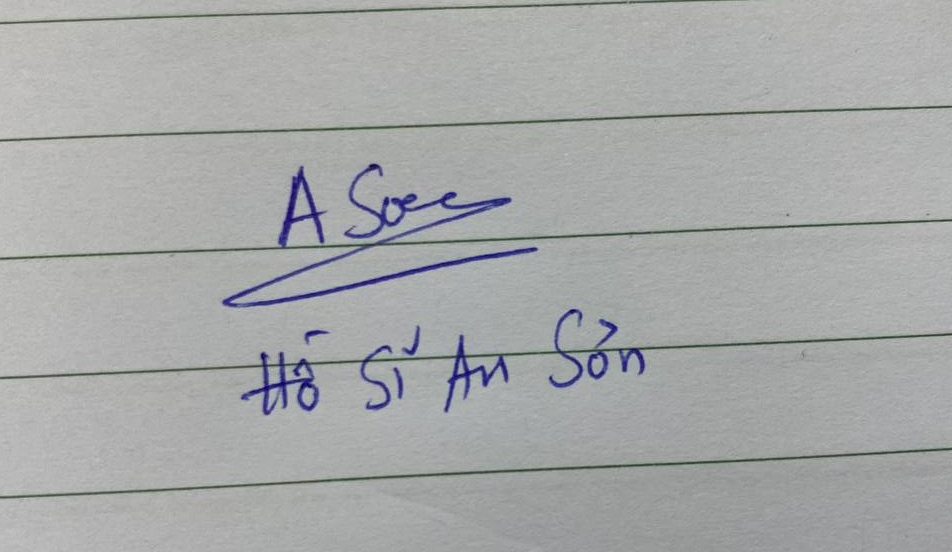 A Son
Hồ Sĩ An Sơn